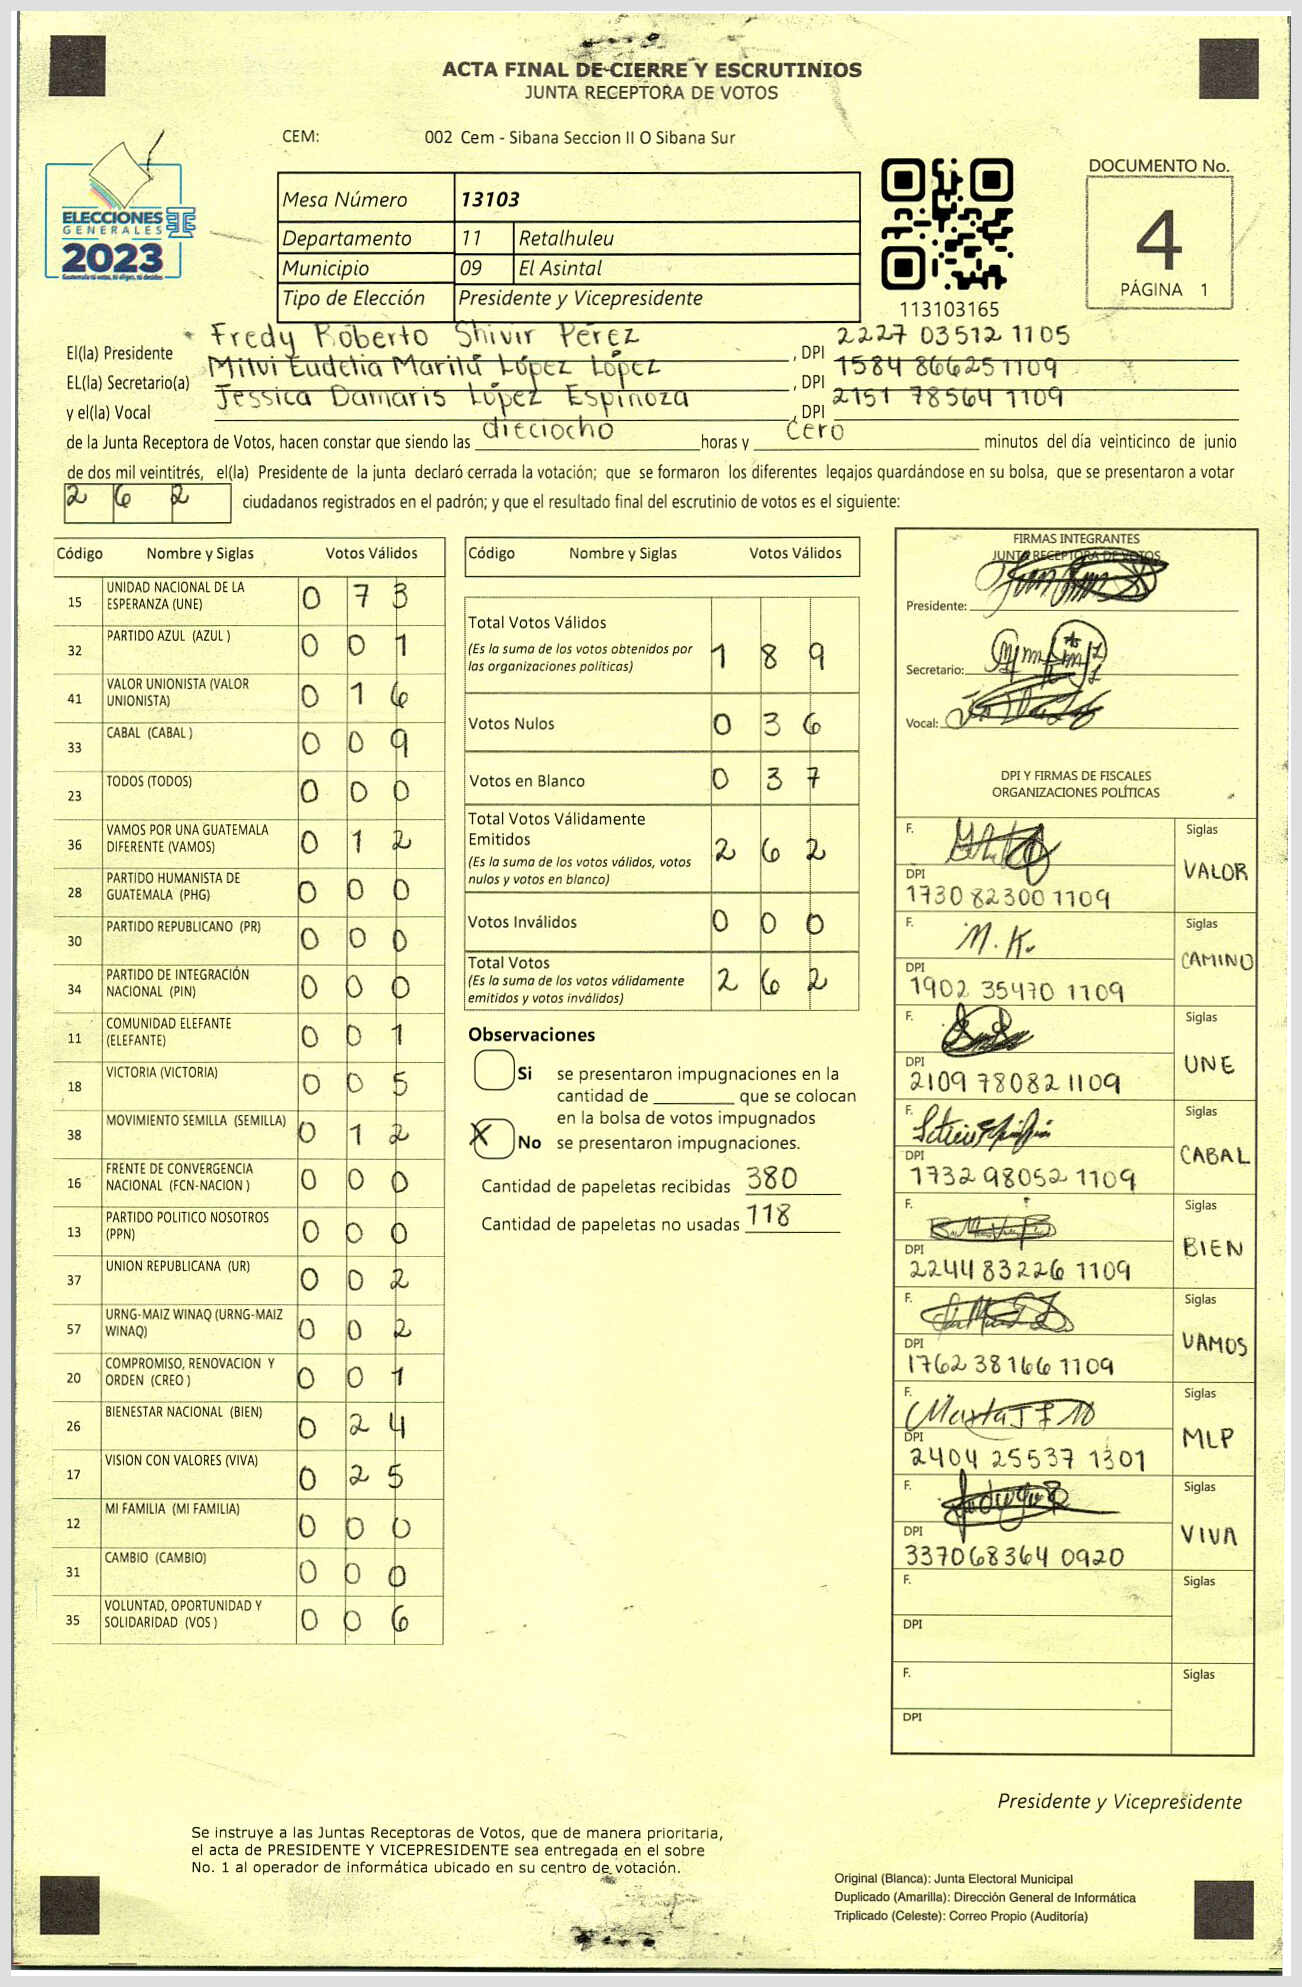 ACTA FINAL DE CIERRE Y ESCRUTINIOS
JUNTA RECEPTORA DE VOTOS
CEM: 002 Cem - Sibana Seccion II O Sibana Sur
ELECCIONES
GENERALES
2023
Mesa Número 13103
Departamento 11 Retalhuleu
Municipio 09 El Asintal
Tipo de Elección Presidente y Vicepresidente
113103165
DOCUMENTO No.
4
PÁGINA 1
El(la) Presidente Fredy Roberto Shivir Pérez , DPI 2227 03512 1105
EL(la) Secretario(a) Milvi Eudelia Marilú López López , DPI 1584 86625 1109
y el(la) Vocal Jessica Damaris López Espinoza , DPI 2151 78564 1109
de la Junta Receptora de Votos, hacen constar que siendo las dieciocho horas y cero minutos del día veinticinco de junio
de dos mil veintitrés, el(la) Presidente de la junta declaró cerrada la votación; que se formaron los diferentes legajos quardándose en su bolsa, que se presentaron a votar
262 ciudadanos registrados en el padrón; y que el resultado final del escrutinio de votos es el siguiente:
Código Nombre y Siglas Votos Válidos
15 UNIDAD NACIONAL DE LA ESPERANZA (UNE) 0 7 3
32 PARTIDO AZUL (AZUL ) 0 0 1
41 VALOR UNIONISTA (VALOR UNIONISTA) 0 1 6
33 CABAL (CABAL ) 0 0 9
23 TODOS (TODOS) 0 0 0
36 VAMOS POR UNA GUATEMALA DIFERENTE (VAMOS) 0 1 2
28 PARTIDO HUMANISTA DE GUATEMALA (PHG) 0 0 0
30 PARTIDO REPUBLICANO (PR) 0 0 0
34 PARTIDO DE INTEGRACIÓN NACIONAL (PIN) 0 0 0
11 COMUNIDAD ELEFANTE (ELEFANTE) 0 0 1
18 VICTORIA (VICTORIA) 0 0 5
38 MOVIMIENTO SEMILLA (SEMILLA) 0 1 2
16 FRENTE DE CONVERGENCIA NACIONAL (FCN-NACION ) 0 0 0
13 PARTIDO POLITICO NOSOTROS (PPN) 0 0 0
37 UNION REPUBLICANA (UR) 0 0 2
57 URNG-MAIZ WINAQ (URNG-MAIZ WINAQ) 0 0 2
20 COMPROMISO, RENOVACION Y ORDEN (CREO ) 0 0 1
26 BIENESTAR NACIONAL (BIEN) 0 2 4
17 VISION CON VALORES (VIVA) 0 2 5
12 MI FAMILIA (MI FAMILIA) 0 0 0
31 CAMBIO (CAMBIO) 0 0 0
35 VOLUNTAD, OPORTUNIDAD Y SOLIDARIDAD (VOS ) 0 0 6
Código Nombre y Siglas Votos Válidos
Total Votos Válidos
(Es la suma de los votos obtenidos por las organizaciones políticas) 1 8 9
Votos Nulos 0 3 6
Votos en Blanco 0 3 7
Total Votos Válidamente Emitidos
(Es la suma de los votos válidos, votos nulos y votos en blanco) 2 6 2
Votos Inválidos 0 0 0
Total Votos
(Es la suma de los votos válidamente emitidos y votos inválidos) 2 6 2
Observaciones
Si se presentaron impugnaciones en la
cantidad de ________ que se colocan
en la bolsa de votos impugnados
X No se presentaron impugnaciones.
Cantidad de papeletas recibidas 380
Cantidad de papeletas no usadas 118
FIRMAS INTEGRANTES
JUNTA RECEPTORA DE VOTOS
Presidente:
Secretario:
Vocal:
DPI Y FIRMAS DE FISCALES
ORGANIZACIONES POLÍTICAS
F. Siglas VALOR
DPI 1730 82300 1109
F. M. K. Siglas CAMINO
DPI 1902 35470 1109
F. Siglas UNE
DPI 2109 78082 1109
F. Siglas CABAL
DPI 1732 98052 1109
F. Siglas BIEN
DPI 2244 83226 1109
F. Siglas VAMOS
DPI 1762 38166 1109
F. Siglas MLP
DPI 2404 25537 1301
F. Siglas VIVA
DPI 3370 68364 0920
F. Siglas
DPI
F. Siglas
DPI
Presidente y Vicepresidente
Se instruye a las Juntas Receptoras de Votos, que de manera prioritaria,
el acta de PRESIDENTE Y VICEPRESIDENTE sea entregada en el sobre
No. 1 al operador de informática ubicado en su centro de votación.
Original (Blanca): Junta Electoral Municipal
Duplicado (Amarilla): Dirección General de Informática
Triplicado (Celeste): Correo Propio (Auditoría)